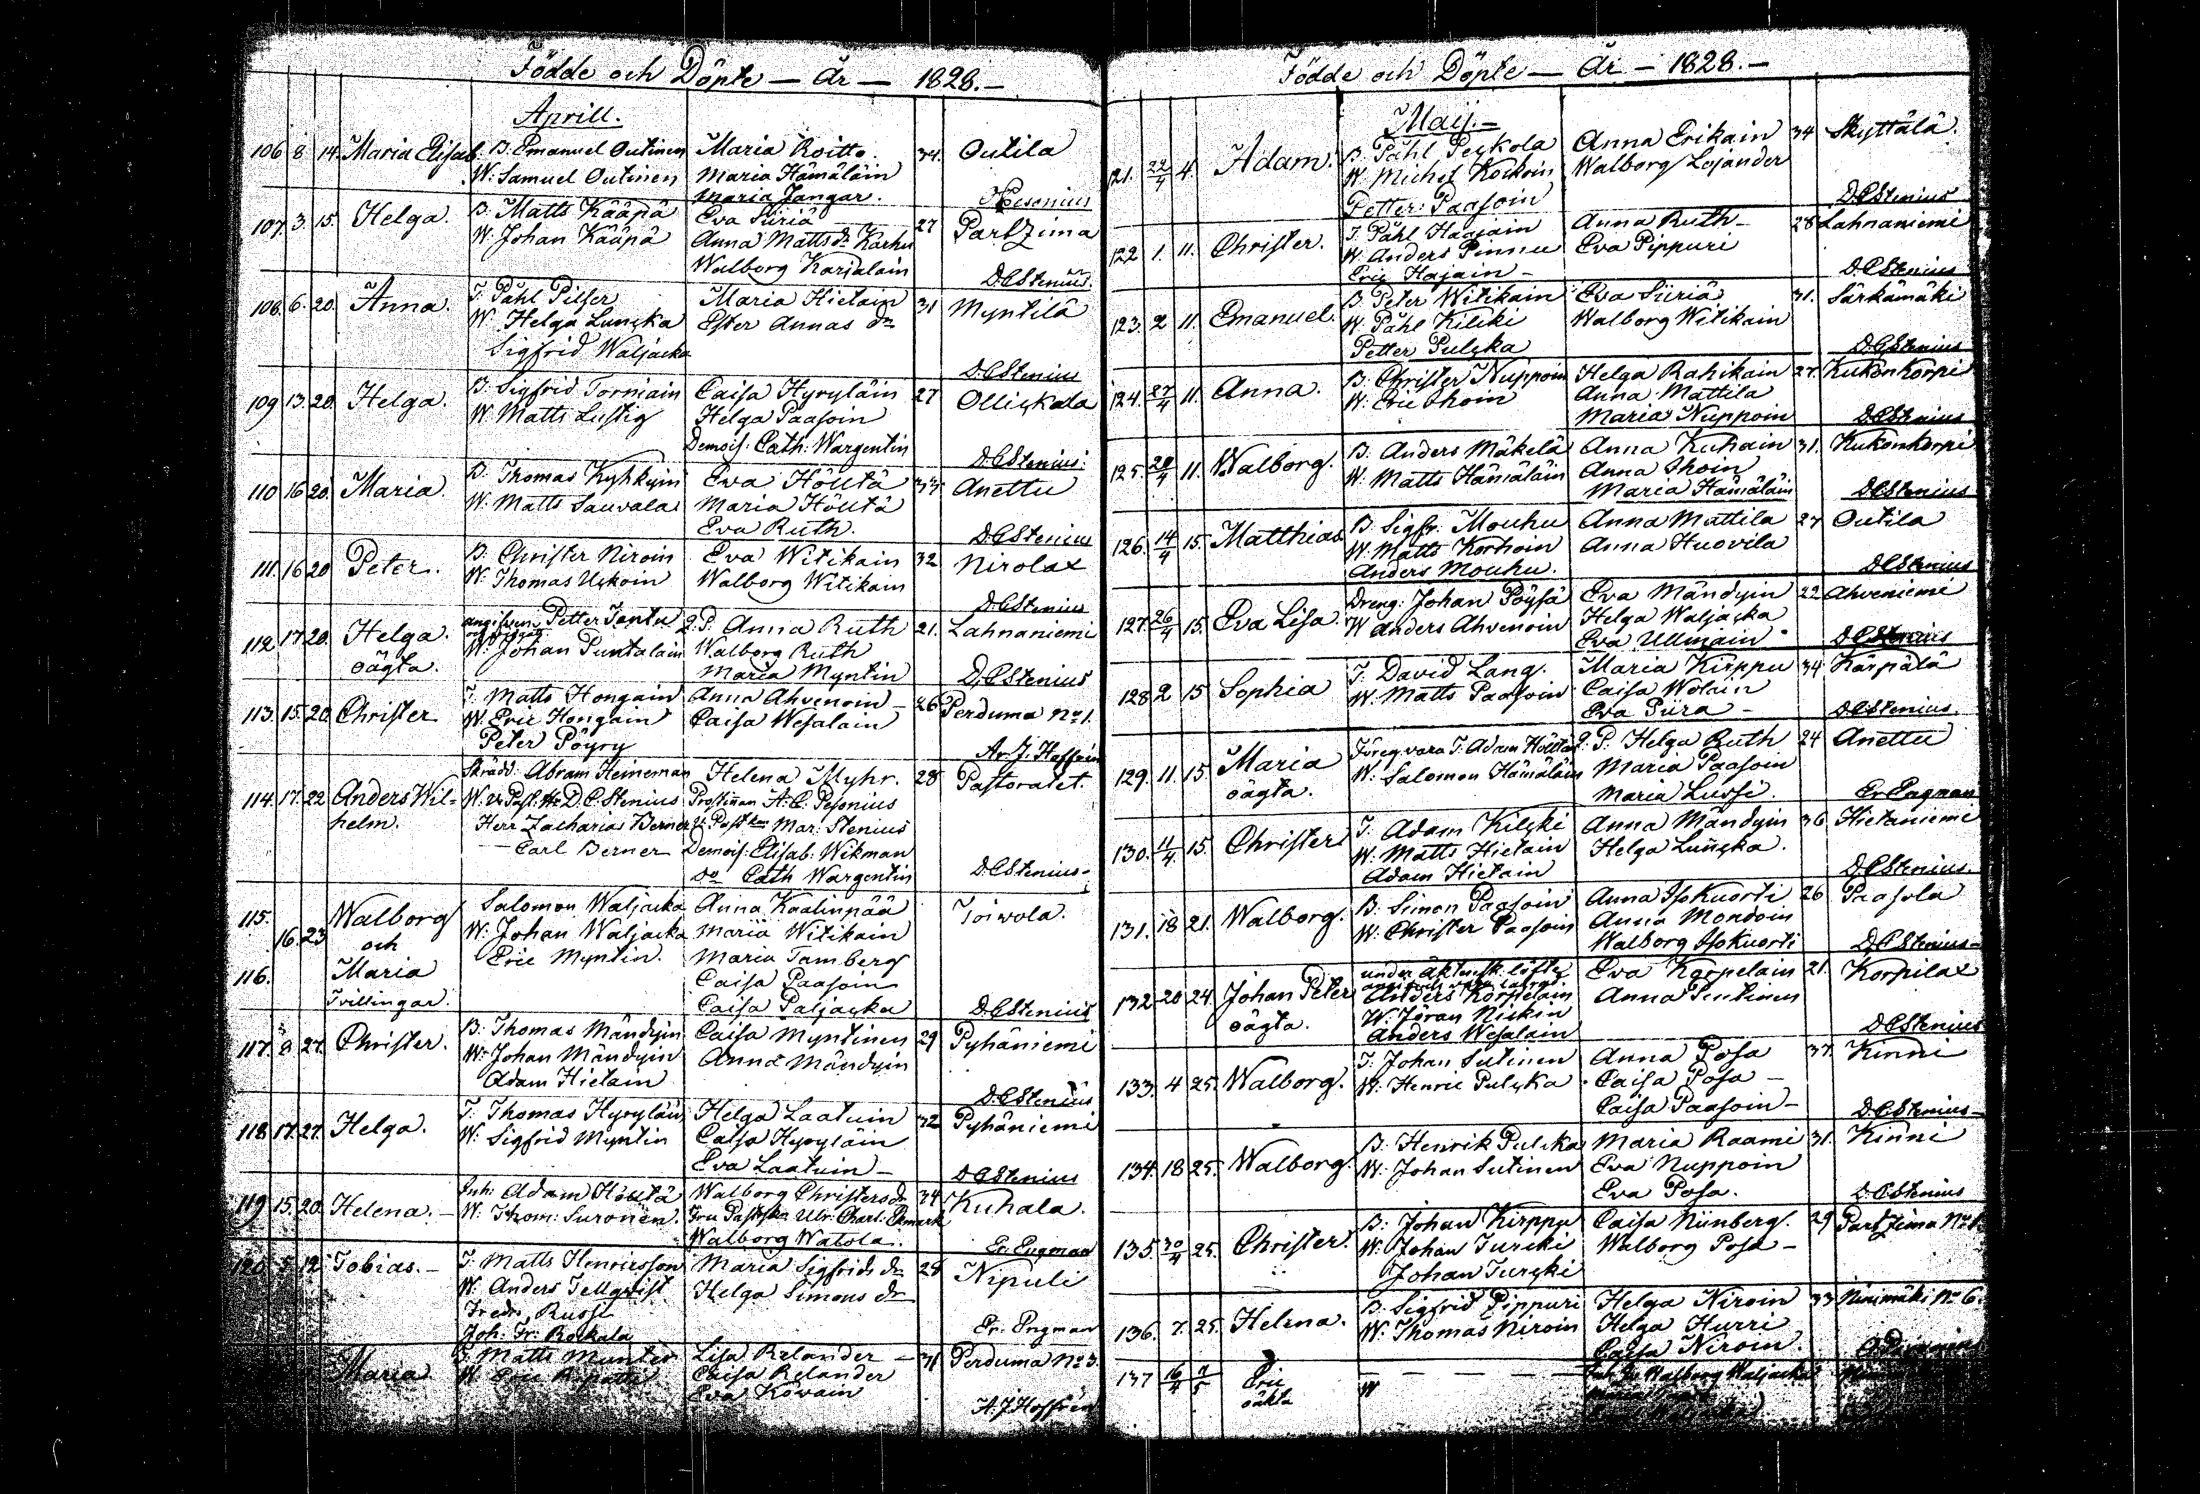 Födde och Döpte — År — 1828. —
Aprill.
106 8. 14. Maria Elisab. B. Emanuel Outinen Maria Roitto. 34. Outila
W. Samuel Outinen Maria Hämäläin
Maria Jangar. Hesenius
107. 3. 15. Helga. B. Matts Kääpä Eva Siiriä 27 Partzima
W. Johan Kääpä Anna Mattsdr Karhu
Walborg Karjalain D.C. Stenius.
108. 6. 20. Anna. T. Påhl Pilser Maria Hietain 31 Myntilä
W. Helga Lunska Ester Annas dr
Sigfrid Waljacka
D.C. Stenius
109 13. 20. Helga. B. Sigfrid Torniain Caisa Hyryläin 27 Olliskala
W. Matts Lustig Helga Paasoin
Demois. Cath. Wargentin D.C. Stenius.
110 16 20. Maria. B. Thomas Kyhkyin Eva Höltä 33 Anettu
W. Matts Sauvala Maria Höltä
Eva Ruth. D.C. Stenius
111. 16 20 Peter. B. Christer Niroin Eva Witikain 32 Nirolax
W. Thomas Uskoin Walborg Witikain
D.C. Stenius
112 17. 20. Helga. Petter Jantu Q.P. Anna Ruth 21. Lahnaniemi
oägta. W. Johan Puntalain Walborg Ruth
Maria Myntin D.C. Stenius
113. 15. 20. Christer T. Matts Hongain Anna Ahvenoin — 26 Perduma No 1.
W. Eric Hongain Caisa Wesalain
Peter Pöyry A.J. Hoffrén
114. 17. 22. Anders Wilhelm. Skrädd. Abram Heineman Helena Myhr. 28 Pastoratet.
W. V. Past. Hr D.C. Stenius Prostinnan A.C. Pesonius
Herr Zacharias Berner V. Past.skan Mar. Stenius
— Carl Berner Demois. Elisab. Wikman
Do Cath Wargentin D.C. Stenius.
115. Walborg Salomon Waljacka Anna Kaatinpää Toiwola.
16. 23 och W. Johan Waljacka Maria Witikain
116. Maria Eric Myntin. Maria Tamberg
Tvillingar. Caisa Paasoin
Caisa Paljacka D.C. Stenius
117. 8 27. Christer. B. Thomas Mändyin Caisa Myntinen 29 Pyhäniemi
W. Johan Mändyin Anna Mändyin
Adam Hietain D.C. Stenius
118. 17. 27. Helga. T. Thomas Hyryläin Helga Laatuin 32 Pyhäniemi
W. Sigfrid Myntin Caisa Hyryläin
Eva Laatuin — D.C. Stenius
119 15. 20. Helena. — Inh. Adam Höltä Walborg Christersdr 34 Kuhala.
W. Thom. Suronen. Fru Past.skan Ulr. Charl. Ekmark
Walborg Watola. Er. Engman
120 5 12. Tobias. — T. Matts Henricsson Maria Sigfrids dr 28 Nipuli
W. Anders Tellqvist Helga Simons dr
Fredr. Russi
Joh. Fr. Rokala Er. Engman
Maria T. Matts Munter Lisa Relander — 31 Perduma No 3.
W. Eric Caisa Relander
Eva Kovain A.J. Hoffrén
Födde och Döpte — År — 1828. —
Maij. —
121. 22/4 4. Adam. B. Påhl Peskola Anna Erikain 34 Skyttälä.
W. Michel Kockoin Walborg Lojander
Petter Paasoin D.C. Stenius
122 1. 11. Christer. T. Påhl Haajain Anna Ruth — 28 Lahnaniemi
W. Anders Pinnu Eva Pippuri
Eric Hajain — D.C. Stenius
123. 2 11. Emanuel. B. Peter Witikain Eva Siiriä 31. Särkämäki
W. Påhl Kilski Walborg Witikain
Petter Pulska D.C. Stenius
124. 27/4 11. Anna. B. Christer Nuppoin Helga Rahikain 27. Kukonkorpi
W. Eric Ihoin Anna Mattila
Maria Nuppoin D.C. Stenius
125. 28/4 11. Walborg. B. Anders Mäkelä Anna Kuhain 31. Kukonkorpi
W. Matts Hämäläin Anna Ihoin
Maria Hämäläin D.C. Stenius
126. 14/4 15. Matthias B. Sigfr. Mouhu Anna Mattila 27 Outila
W. Matts Korhoin Anna Huovila
Anders Mouhu. D.C. Stenius
127. 26/4 15. Eva Lisa. Dreng. Johan Pöysä Eva Mändyin 22 Ahveniemi
W Anders Ahvenoin Helga Waljacka
Eva Ullmain D.C. Stenius
128 2 15 Sophia T. David Lang. Maria Kirppu 34 Kärpälä
W. Matts Paasoin Caisa Wolain
Eva Piira — D.C. Stenius.
129. 11. 15. Maria Föreg. vara T. Adam Höltä Q. P. Helga Ruth 24 Anettu
oägta. W. Salomon Hämäläin Maria Paasoin
Maria Lussi. Er Engman
130. 11/4 15. Christer T. Adam Kilski Anna Mändyin 36 Hietaniemi
W. Matts Hietain Helga Lunska.
Adam Hietain D.C. Stenius.
131. 18 21. Walborg. B. Simon Paasoin Anna Isokuorti 26 Paasola
W. Christer Paasoin Anna Mondoin
Walborg Isokuorti D.C. Stenius —
132 20 24. Johan Peter under äktensk. löfte Eva Korpelain 21. Korpilax
oägta. Anders Korpelain Anna Pentinen
W. Jöran Niskin
Anders Wesalain D.C. Stenius
133. 4 25. Walborg. T. Johan Sutinen Anna Posa 37. Kinni
W. Henric Pulska Caisa Posa —
Caisa Paasoin — D.C. Stenius —
134. 18 25. Walborg. B. Henrik Pulska Maria Raami 31. Kinni
W. Johan Sutinen Eva Nuppoin
Eva Posa. D.C. Stenius
135. 30/4 25. Christer. B. Johan Kirppu Caisa Niinberg. 29 Partzima No 1.
W. Johan Turski Walborg Posa —
Johan Turski
136. 7. 25. Helena. B. Sigfrid Pippuri Helga Niroin 33 Ninimäki No 6.
W. Thomas Niroin Helga Hurri
Caisa Niroin.
137 16/4 7/5 Eric — — — — — Walborg Waljacka
oäkta W